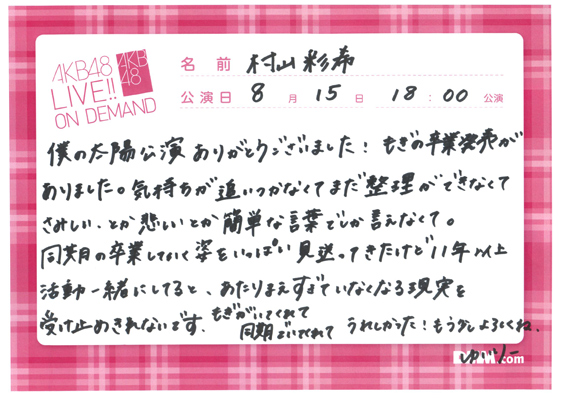 AKB48
LIVE!!
ON DEMAND
AKB
48
名前 村山彩希
公演日 8月15日 18:00 公演
僕の太陽公演ありがとうございました！もぎの卒業発売が
ありました。気持ちが追いつかなくてまだ整理ができなくて
さみしい、とか悲しいとか簡単な言葉でしか言えなくて。
同期の卒業していく姿をいっぱい見送ってきたけど11年以上
活動一緒にしてると、あたりまえすぎていなくなる現実を
受け止めきれないです。もぎがいてくれて
同期でいてくれて うれしかった！もう少しよろしくね。
ゆいりー
.com